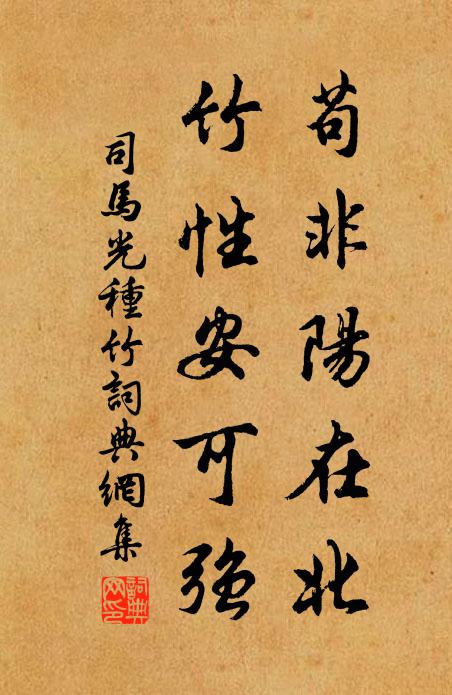 苟非陽在北
竹性安可強
司馬光種竹詞典網集
詞典網印